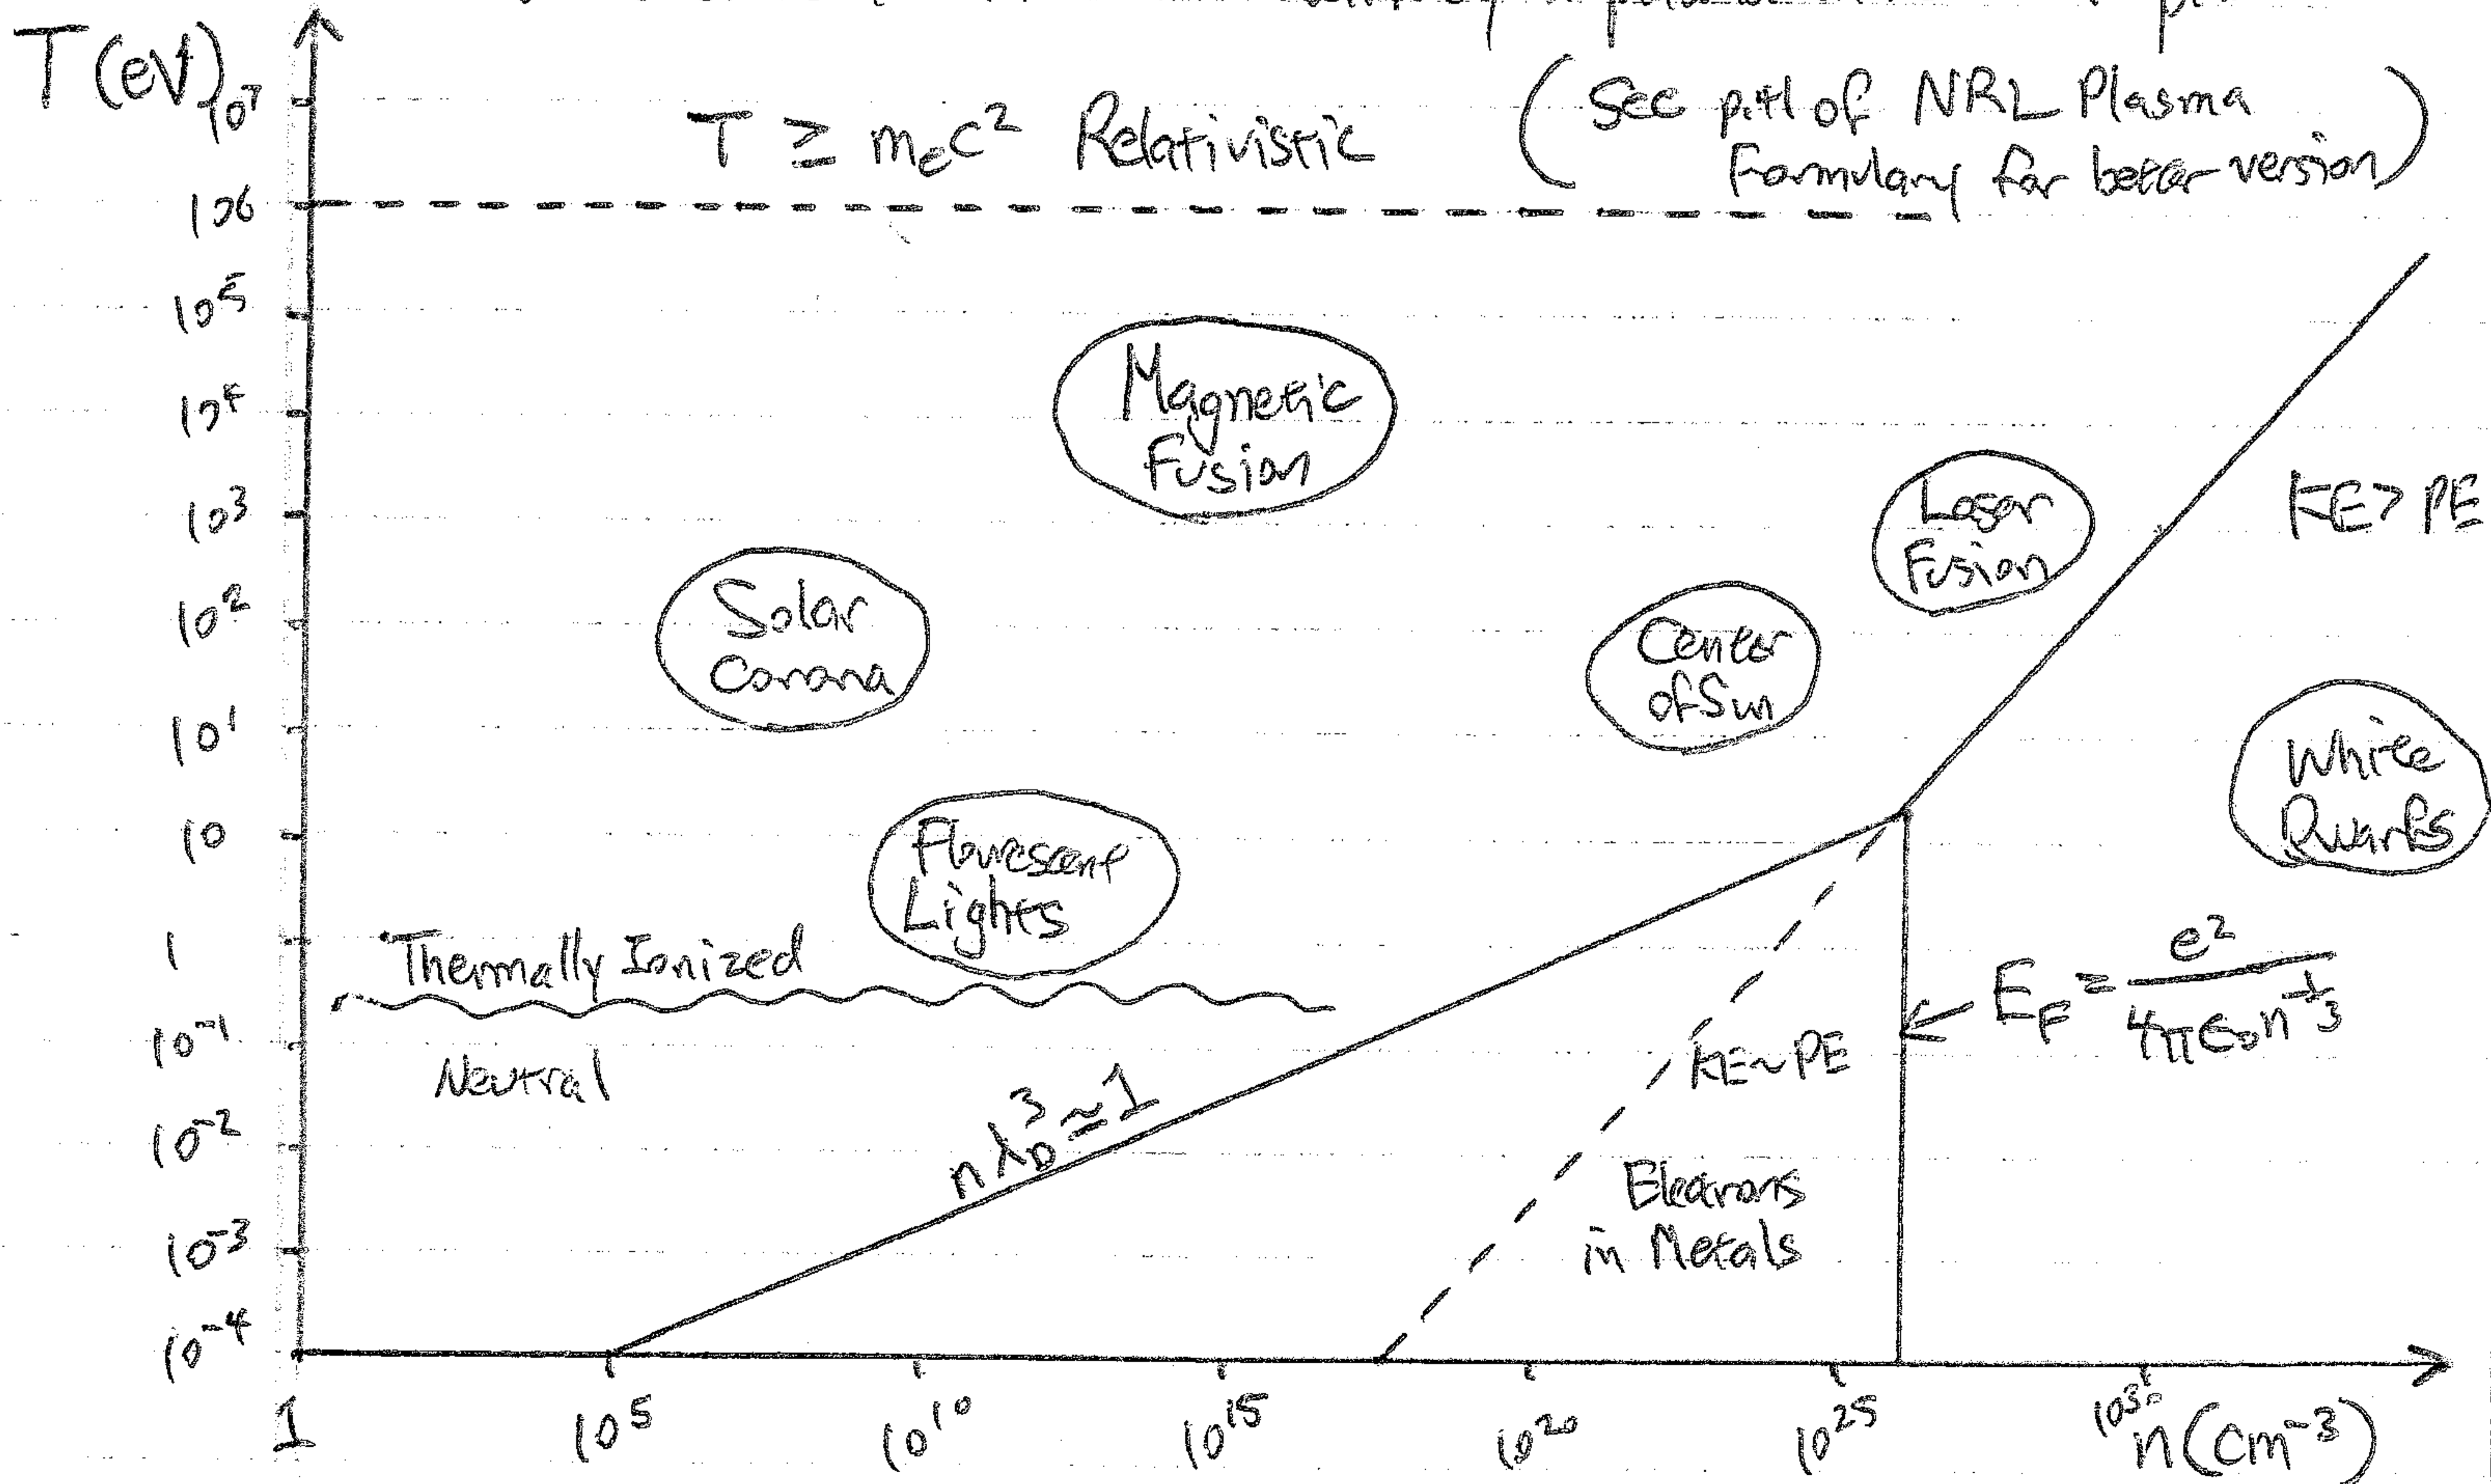 T (eV)
T ≥ mₑc² Relativistic
(See p.41 of NRL Plasma
Formulary for better version)
10⁷
10⁶
10⁵
10⁴
10³
10²
10¹
10
1
10⁻¹
10⁻²
10⁻³
10⁻⁴
Magnetic
Fusion
Laser
Fusion
KE > PE
Solar
Corona
Center
of Sun
White
Dwarfs
Lights
Thermally Ionized
Neutral
nλ_D³ ≃ 1
KE~PE
E_F = e² / 4πε₀n^-1/3
Electrons
in Metals
1
10⁵
10¹⁰
10¹⁵
10²⁰
10²⁵
10³⁰
n (cm⁻³)